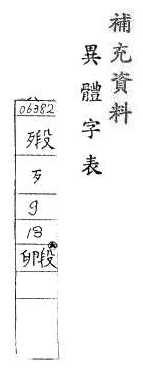 補充資料
異體字表
06382
歹
9
13
毈